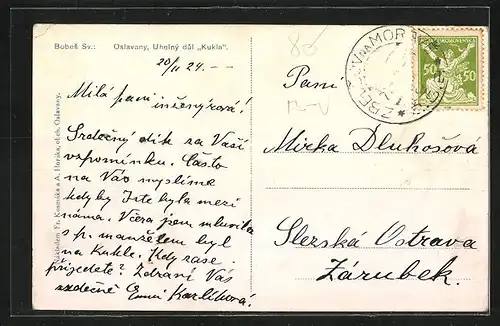 Bobeš Sv.: Oslavany, Uhelný důl „Kukla“.
20/II 24. --
Milá paní inženýrová!
Srdečný dík za Vaši
vzpomínku. Často
na Vás myslíme
kdyby jste byla mezi
náma. Včera jsem mluvila
s p. manželem byl
na Kukle. Kdy zase
přijedete? Zdraví Vás
srdečně Emi Karlíková!
Nákladem Fr. Kosmáka a A. Horáka, ob. ch. Oslavany.
50 50
Paní
Mirka Dluhošová
Slezská Ostrava
Zárubek.